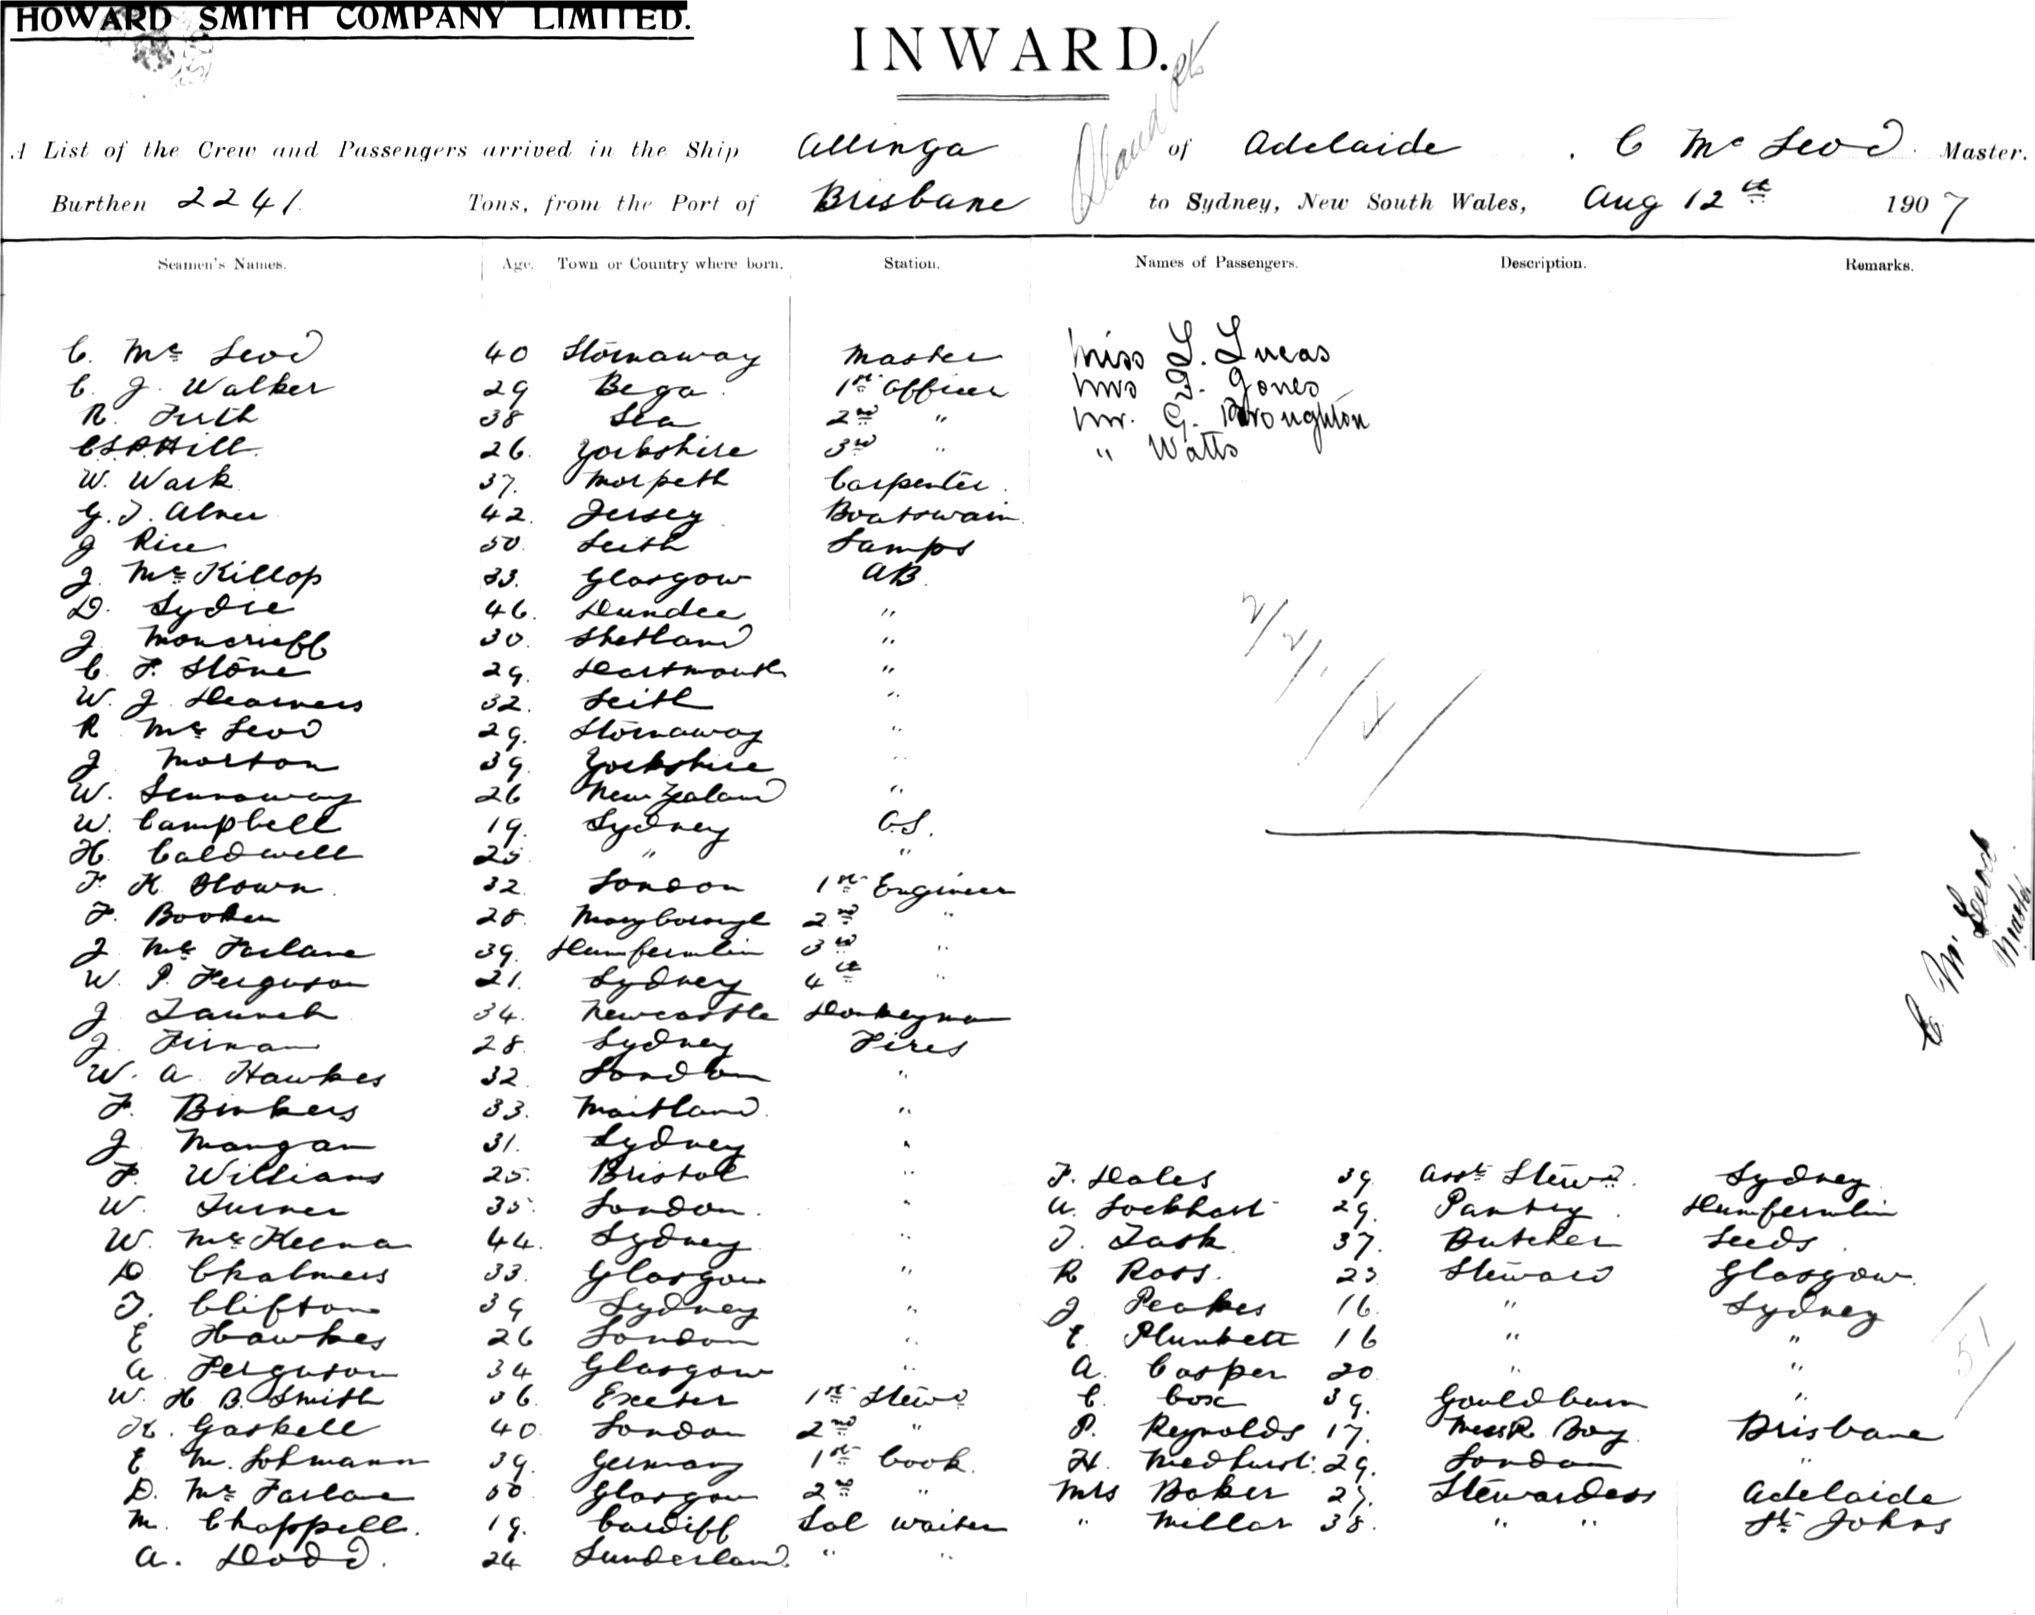 HOWARD SMITH COMPANY LIMITED.
INWARD.
A List of the Crew and Passengers arrived in the Ship Allinga of Adelaide, C Mc Leod Master.
Burthen 2241 Tons, from the Port of Brisbane to Sydney, New South Wales, Aug 12th 1907
Seamen's Names. Age. Town or Country where born. Station. Names of Passengers. Description. Remarks.
C. Mc Leod 40 Stornaway Master Miss L. Lucas
C. J. Walker 29 Bega 1st Officer Mrs Jones
R. Firth 38 Sea 2nd " Mr. G. Broughton
Hill 26. Yorkshire 3rd " " Watts
W. Wark 37. Morpeth Carpenter
G. T. Alner 42. Jersey Boatswain
J Rice 50. Leith Lamps
J. Mc Killop 33. Glasgow AB
D. Lydie 46. Dundee "
J Moncrieff 30. Shetland "
C. F. Stone 29. Dartmouth "
W. J. 32. Leith "
R Mc Leod 29. Stornaway "
J Morton 39. Yorkshire "
W. 26 New Zealand "
W. Campbell 19. Sydney O.S.
H. Caldwell 25 " "
F. H. 32 London 1st Engineer
F. 28. Maryborough 2nd "
J Mc Farlane 39. Dumfermlin 3rd "
W. P. Ferguson 21. Sydney 4th "
J 34. Newcastle Donkeyman
J. Firnan 28. Sydney Fires
W. A. Hawkes 32. London "
F. Binkers 33. Maitland "
J Mangan 31. Sydney "
F. Williams 25. Bristol " F. Dales 39 Asst Stewd. Sydney
W. Turner 35. London " A. Lockhart 29. Pantry Dumfermlin
W. Mc Keena 44. Sydney " T. Task 37. Butcher Leeds
D Chalmers 33. Glasgow " R Ross. 23. Steward Glasgow
T. Clifton 39 Sydney " J Peakes 16. " Sydney
E Hawkes 26 London " E. Plunkett 16 " "
A. Ferguson 34 Glasgow " A. Casper 20 " "
W. H. B. Smith 36. Exeter 1st Stewd C. Cox 39. Gouldburn "
H. Gaskell 40 London 2nd " P. Reynolds 17. Mess R Boy Brisbane
E M. Lohmann 39. Germany 1st Cook. H. Medhurst. 29. London "
D. Mc Farlane 50. Glasgow 2nd " Mrs Baker 27. Stewardess Adelaide
M. Chappell. 19. Cardiff Sal waiter " Millar 38. " " St Johns
A. Dodd. 24 Sunderland " "
C. Mc Leod
Master
51